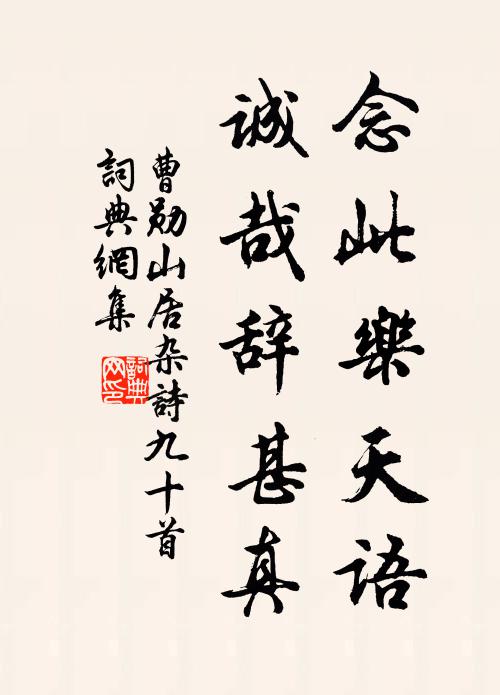 念此樂天語
誠哉辞甚真
曹勛山居杂詩九十首
詞典網集
詞典
网印